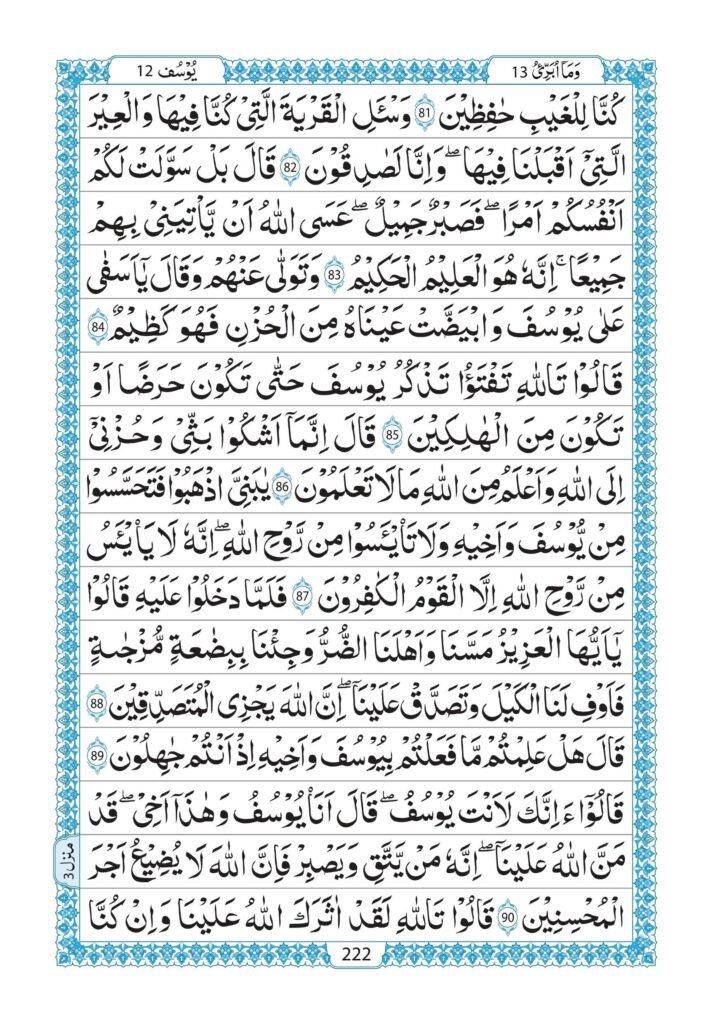 يُوۡسُف 12
وَمَاۤ اُبَرِّئُ 13
كُنَّا لِلۡغَيۡبِ حٰفِظِيۡنَ 81 وَسۡـَٔلِ الۡقَرۡيَةَ الَّتِىۡ كُنَّا فِيۡهَا وَالۡعِيۡرَ
الَّتِىۡۤ اَقۡبَلۡنَا فِيۡهَا ۖ وَاِنَّا لَصٰدِقُوۡنَ 82 قَالَ بَلۡ سَوَّلَتۡ لَـكُمۡ
اَنۡفُسُكُمۡ اَمۡرًا ۖ فَصَبۡرٌ جَمِيۡلٌ ۖ عَسَى اللّٰهُ اَنۡ يَّاۡتِيَنِىۡ بِهِمۡ
جَمِيۡعًا ۚ اِنَّهٗ هُوَ الۡعَلِيۡمُ الۡحَكِيۡمُ 83 وَتَوَلّٰى عَنۡهُمۡ وَقَالَ يٰۤاَسَفٰى
عَلٰى يُوۡسُفَ وَابۡيَضَّتۡ عَيۡنَاهُ مِنَ الۡحُـزۡنِ فَهُوَ كَظِيۡمٌ 84
قَالُوۡا تَاللّٰهِ تَفۡتَؤُا تَذۡكُرُ يُوۡسُفَ حَتّٰى تَكُوۡنَ حَرَضًا اَوۡ
تَكُوۡنَ مِنَ الۡهٰلِكِيۡنَ 85 قَالَ اِنَّمَاۤ اَشۡكُوۡا بَثِّىۡ وَحُزۡنِىۡۤ
اِلَى اللّٰهِ وَاَعۡلَمُ مِنَ اللّٰهِ مَا لَا تَعۡلَمُوۡنَ 86 يٰبَنِىَّ اذۡهَبُوۡا فَتَحَسَّسُوۡا
مِنۡ يُّوۡسُفَ وَاَخِيۡهِ وَلَا تَا۟يۡـَٔسُوۡا مِنۡ رَّوۡحِ اللّٰهِ ۖ اِنَّهٗ لَا يَا۟يۡـَٔسُ
مِنۡ رَّوۡحِ اللّٰهِ اِلَّا الۡقَوۡمُ الۡكٰفِرُوۡنَ 87 فَلَمَّا دَخَلُوۡا عَلَيۡهِ قَالُوۡا
يٰۤاَيُّهَا الۡعَزِيۡزُ مَسَّنَا وَاَهۡلَنَا الضُّرُّ وَجِئۡنَا بِبِضَاعَةٍ مُّزۡجٰٮةٍ
فَاَوۡفِ لَنَا الۡكَيۡلَ وَتَصَدَّقۡ عَلَيۡنَاؕ ۖ اِنَّ اللّٰهَ يَجۡزِى الۡمُتَصَدِّقِيۡنَ 88
قَالَ هَلۡ عَلِمۡتُمۡ مَّا فَعَلۡتُمۡ بِيُوۡسُفَ وَاَخِيۡهِ اِذۡ اَنۡتُمۡ جٰهِلُوۡنَ 89
قَالُوۡۤا ءَاِنَّكَ لَاَنۡتَ يُوۡسُفُ ۖ قَالَ اَنَا۟ يُوۡسُفُ وَهٰذَاۤ اَخِىۡ ۖ قَدۡ
مَنَّ اللّٰهُ عَلَيۡنَا ۖ اِنَّهٗ مَنۡ يَّتَّقِ وَيَصۡبِرۡ فَاِنَّ اللّٰهَ لَا يُضِيۡعُ اَجۡرَ
الۡمُحۡسِنِيۡنَ 90 قَالُوۡا تَاللّٰهِ لَقَدۡ اٰثَرَكَ اللّٰهُ عَلَيۡنَا وَاِنۡ كُنَّا
منزل 3
222